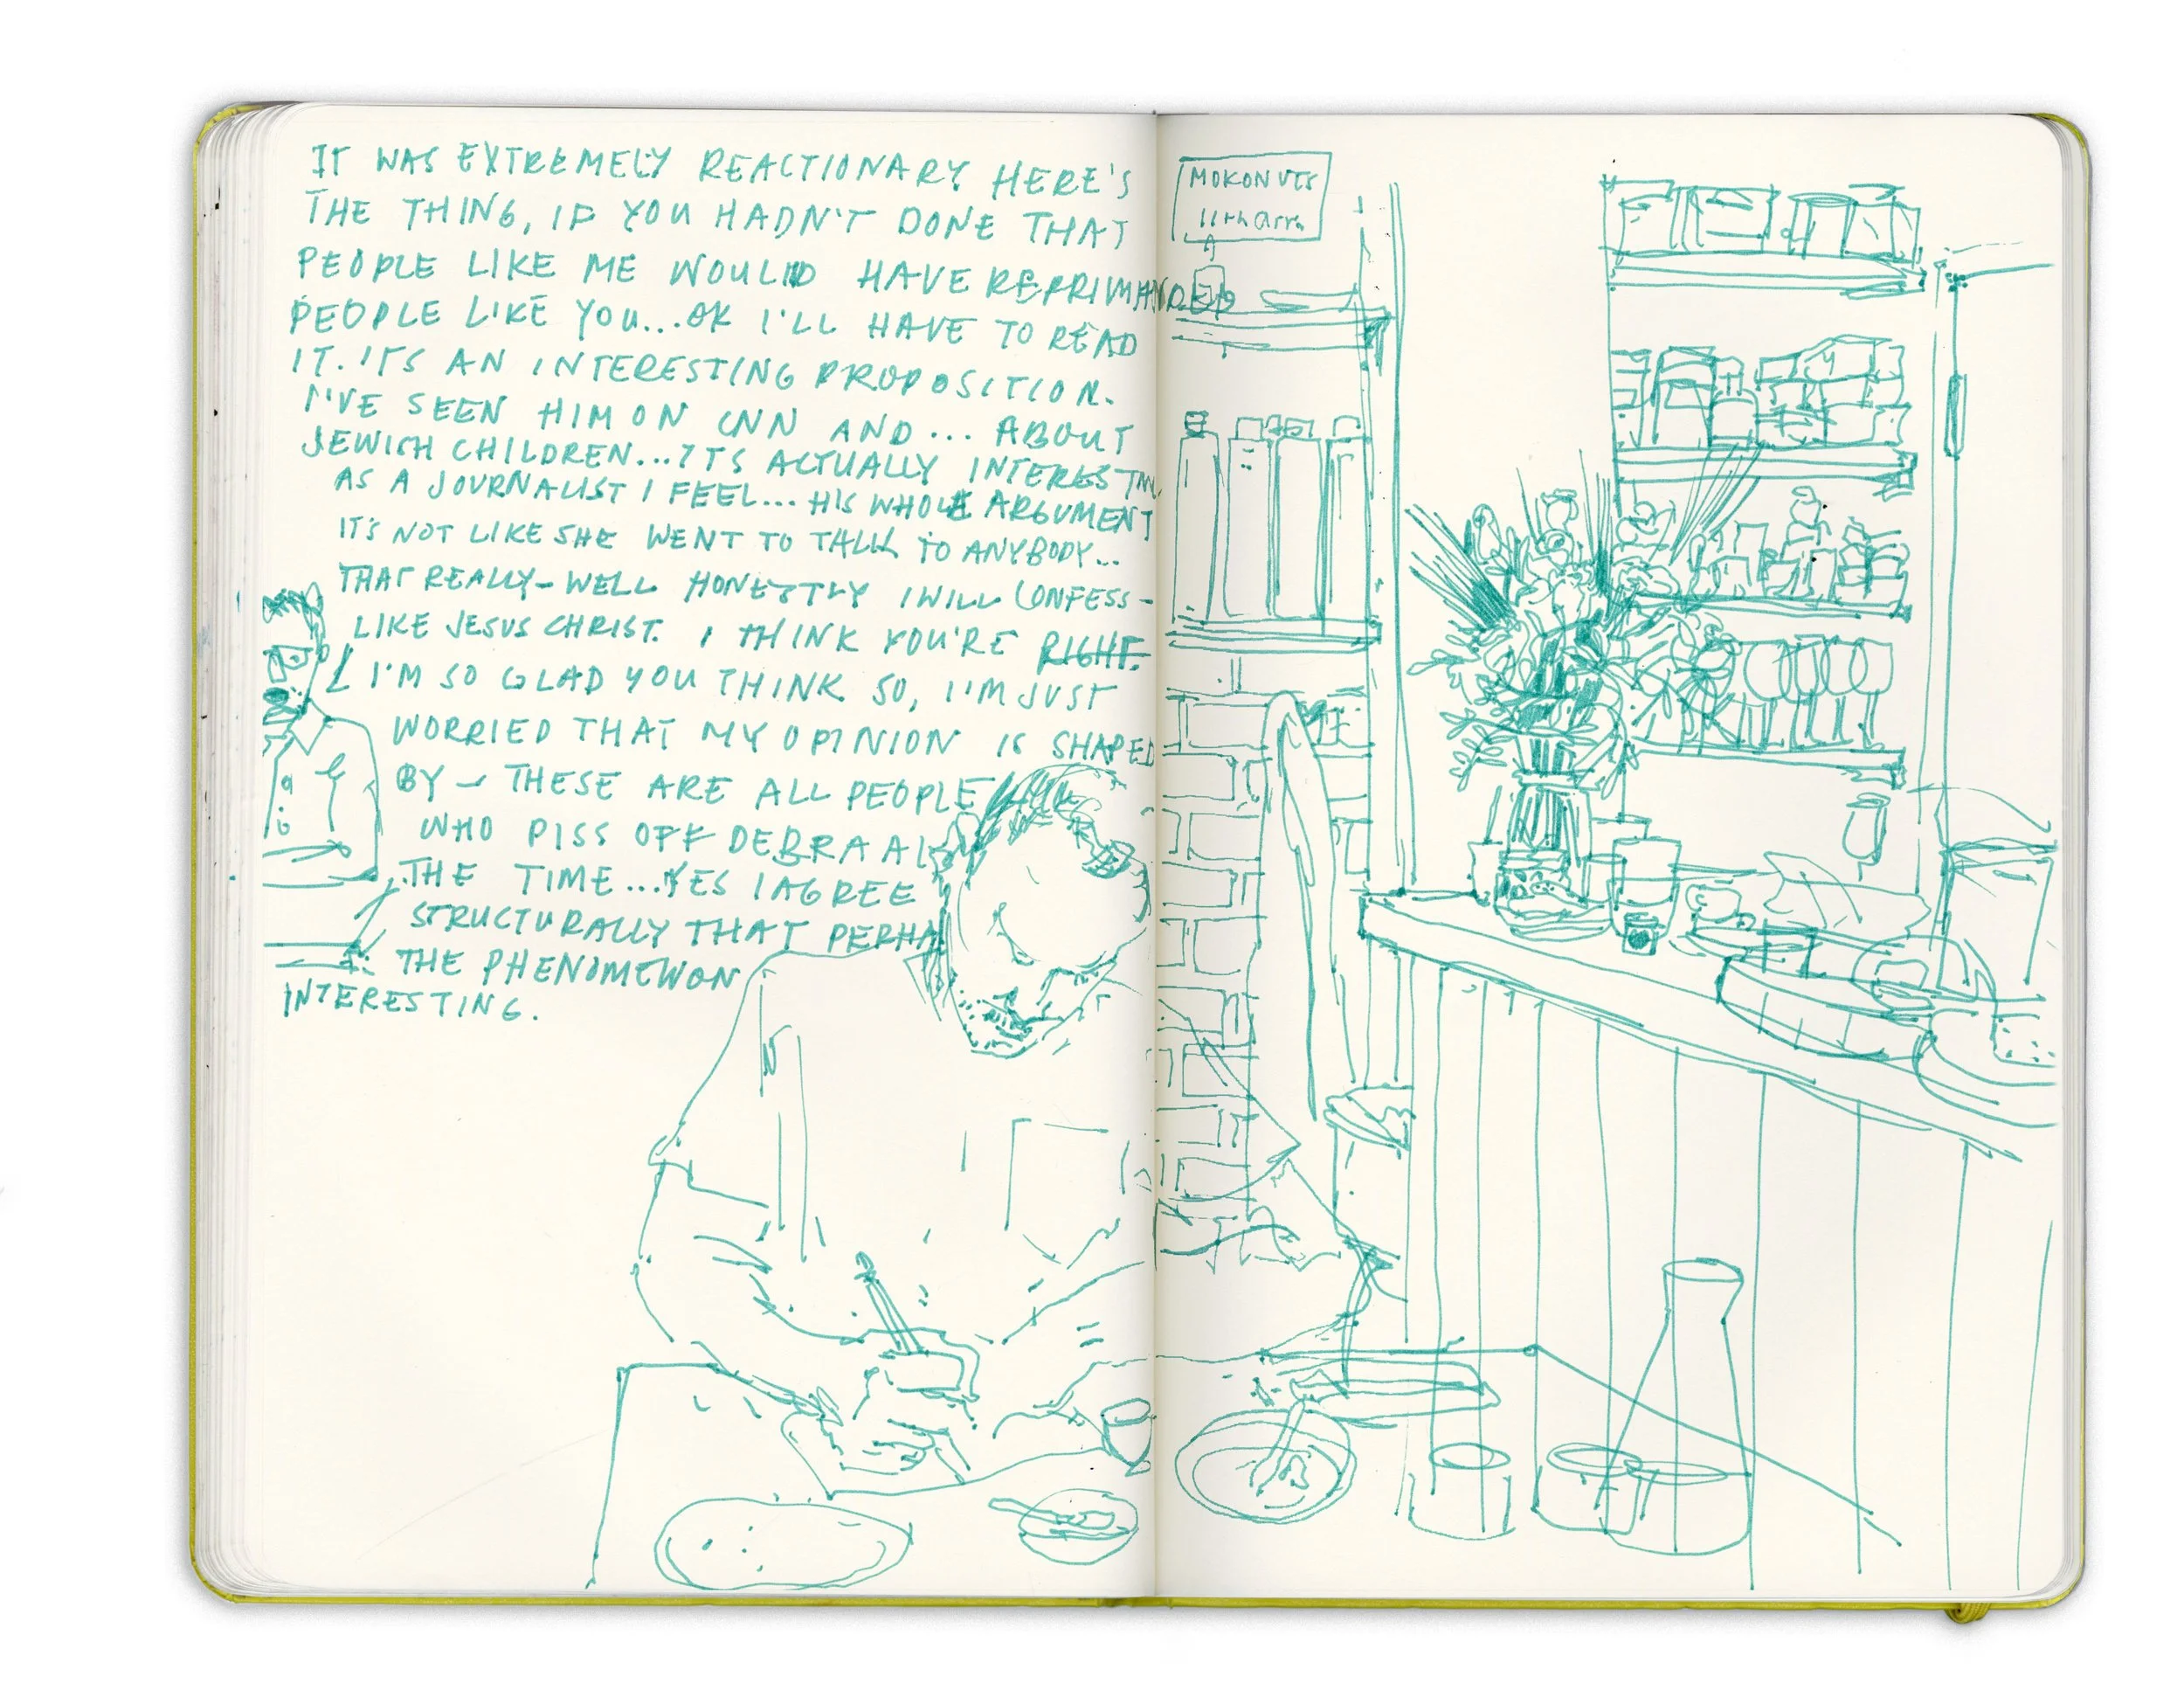 IT WAS EXTREMELY REACTIONARY HERE'S
THE THING, IF YOU HADN'T DONE THAT
PEOPLE LIKE ME WOULD HAVE REPRIMANDED
PEOPLE LIKE YOU...OK I'LL HAVE TO READ
IT. IT'S AN INTERESTING PROPOSITION.
I'VE SEEN HIM ON CNN AND... ABOUT
JEWISH CHILDREN...ITS ACTUALLY INTERESTING
AS A JOURNALIST I FEEL... HIS WHOLE ARGUMENT
IT'S NOT LIKE SHE WENT TO TALK TO ANYBODY...
THAT REALLY- WELL HONESTLY I WILL CONFESS-
LIKE JESUS CHRIST. I THINK YOU'RE RIGHT.
I'M SO GLAD YOU THINK SO, I'M JUST
WORRIED THAT MY OPINION IS SHAPED
BY - THESE ARE ALL PEOPLE
WHO PISS OFF DEBRA AL
THE TIME...YES I AGREE
STRUCTURALLY THAT PERHA
THE PHENOMENON
INTERESTING.
MOKONUTS
11th arr.